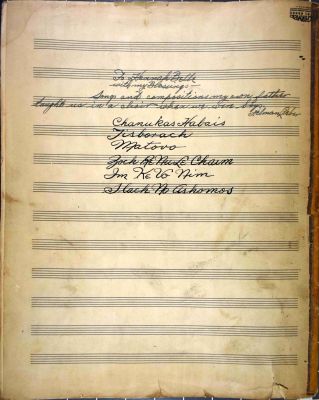 To Hannah Belle
with my Blessings
Song and compositions my own father
taught us in a choir when we were boys
Chanukas Habais
Tisborach
Matovo
Zoch Re Nu Le Chaim
Im Ke Vo Nim
Slach No Ashomos